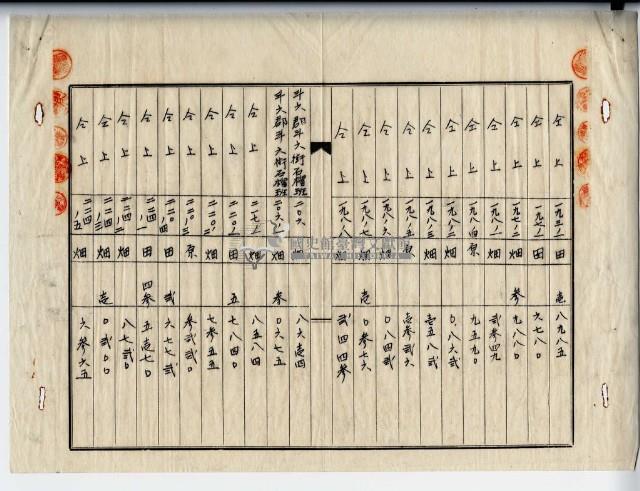 仝上 一九五ノ一 田 壱 八九八五
仝上 一九七ノ一 田 六七八〇
仝上 一九八ノ一 畑 参 九八八〇
仝上 畑 弐参四九
仝上 一九八ノ四 原 九五九〇
仝上 一九八ノ二 畑 〇八六弐
仝上 一九八ノ三 畑 壱五八弐
仝上 一九八ノ五 原 壱参弐弐
仝上 一九八ノ六 畑 〇八四弐
仝上 一九八ノ七 畑 壱 〇参七六
仝上 一九八ノ八 畑 弐四四参
斗六郡斗六街石榴班 二〇六 畑 八六壱四
斗六郡斗六街石榴班 二〇六ノ一 畑 参 〇六七五
仝上 二一七ノ一 畑 八五八四
仝上 二二〇ノ一 田 五 七八四〇
仝上 原 七参五五
仝上 二二〇ノ三 原 参弐弐〇
仝上 二二〇ノ四 田 弐 六七七弐
仝上 田 四参 五壱七〇
仝上 二二四ノ二 畑 八七弐〇
仝上 二二四 畑 壱 〇弐〇〇
仝上 二二四ノ五 畑 六参六五
國史館臺灣文獻館